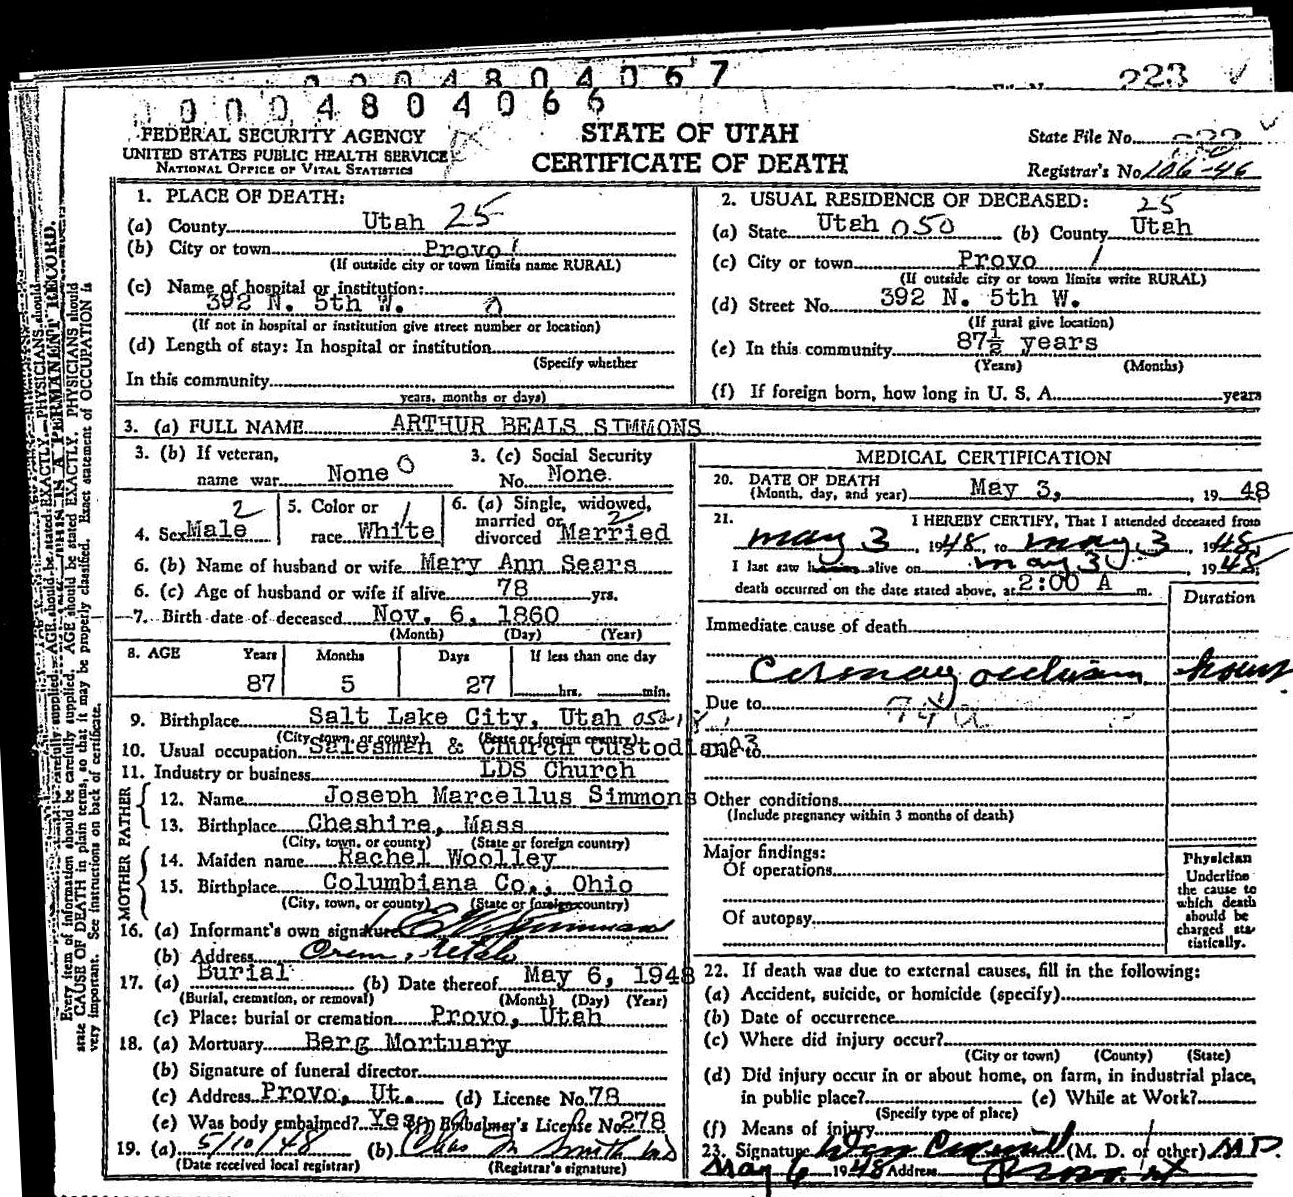 0004804067
223
0004804066
FEDERAL SECURITY AGENCY
UNITED STATES PUBLIC HEALTH SERVICE
NATIONAL OFFICE OF VITAL STATISTICS
STATE OF UTAH
CERTIFICATE OF DEATH
State File No.
Registrar's No. 106-46
1. PLACE OF DEATH:
(a) County Utah 25
(b) City or town Provo 1
(If outside city or town limits name RURAL)
(c) Name of hospital or institution:
392 N. 5th W. 0
(If not in hospital or institution give street number or location)
(d) Length of stay: In hospital or institution
(Specify whether
In this community
years, months or days)
2. USUAL RESIDENCE OF DECEASED:
25
(a) State Utah 050 (b) County Utah
(c) City or town Provo 1
(If outside city or town limits write RURAL)
(d) Street No. 392 N. 5th W.
(If rural give location)
(e) In this community 87½ years
(Years) (Months)
(f) If foreign born, how long in U. S. A. years
3. (a) FULL NAME ARTHUR BEALS SIMMONS
3. (b) If veteran,
name war None 0
3. (c) Social Security
No. None.
4. Sex Male 2
5. Color or
race White 1
6. (a) Single, widowed,
married or
divorced Married 2
6. (b) Name of husband or wife Mary Ann Sears
6. (c) Age of husband or wife if alive 78 yrs.
7. Birth date of deceased Nov. 6, 1860
(Month) (Day) (Year)
8. AGE Years Months Days If less than one day
87 5 27 hrs. min.
9. Birthplace Salt Lake City, Utah
(City, town, or county) (State or foreign country)
10. Usual occupation Salesman & Church Custodian
11. Industry or business LDS Church
FATHER
12. Name Joseph Marcellus Simmons
13. Birthplace Cheshire, Mass
(City, town, or county) (State or foreign country)
MOTHER
14. Maiden name Rachel Woolley
15. Birthplace Columbiana Co., Ohio
(City, town, or county) (State or foreign country)
16. (a) Informant's own signature E W Simmons
(b) Address Orem, Utah
17. (a) Burial (b) Date thereof May 6, 1948
(Burial, cremation, or removal) (Month) (Day) (Year)
(c) Place: burial or cremation Provo, Utah
18. (a) Mortuary Berg Mortuary
(b) Signature of funeral director
(c) Address Provo, Ut. (d) License No. 78
(e) Was body embalmed? Yes (f) Embalmer's License No. 278
19. (a) 5/10/48 (b) Chas M Smith MD
(Date received local registrar) (Registrar's signature)
MEDICAL CERTIFICATION
20. DATE OF DEATH
(Month, day, and year) May 3, 19 48
21. I HEREBY CERTIFY, That I attended deceased from
May 3, 1948, to May 3, 1948,
I last saw h alive on May 3, 1948;
death occurred on the date stated above, at 2:00 A m.
Duration
Immediate cause of death
Coronary occlusion hours
Due to
Due to
Other conditions
(Include pregnancy within 3 months of death)
Major findings:
Of operations
Of autopsy
Physician
Underline
the cause to
which death
should be
charged sta-
tistically.
22. If death was due to external causes, fill in the following:
(a) Accident, suicide, or homicide (specify)
(b) Date of occurrence
(c) Where did injury occur?
(City or town) (County) (State)
(d) Did injury occur in or about home, on farm, in industrial place,
in public place? (e) While at Work?
(Specify type of place)
(f) Means of injury
23. Signature (M. D. or other) M.D.
May 6 1948 Address Provo, Ut
Every item of information should be carefully supplied. AGE should be stated EXACTLY. PHYSICIANS should
state CAUSE OF DEATH in plain terms, so that it may be properly classified. Exact statement of OCCUPATION is
very important. See instructions on back of certificate.
THIS IS A PERMANENT RECORD.